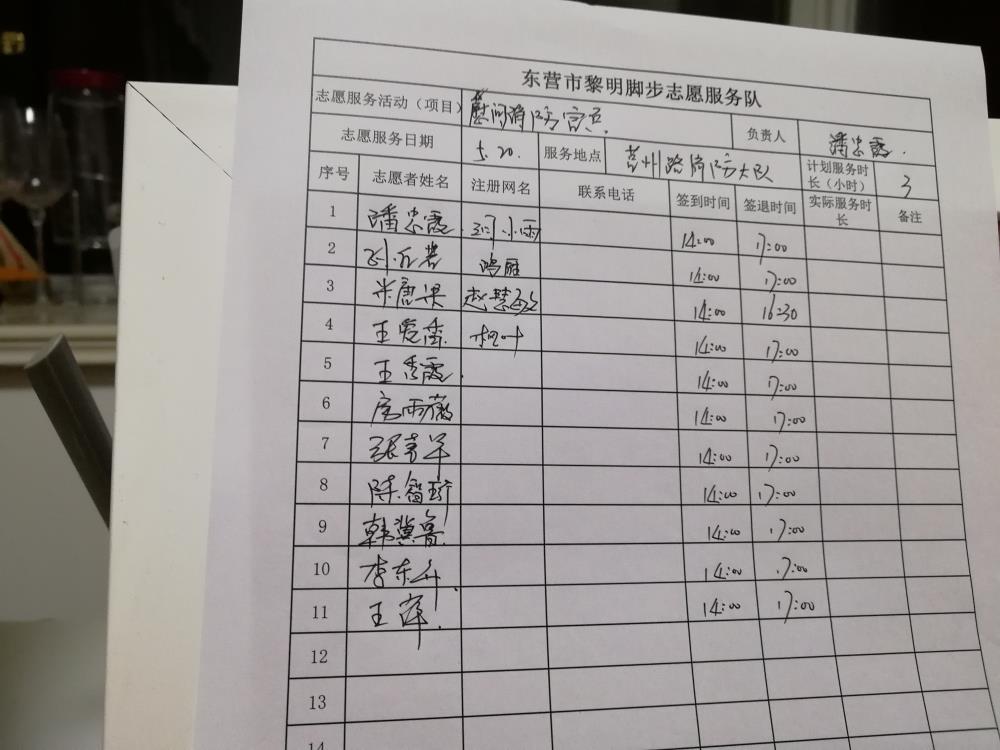 东营市黎明脚步志愿服务队
志愿服务活动（项目） 慰问消防官兵. 负责人 潘忠霞.
志愿服务日期 5.20. 服务地点 莒州路消防大队 计划服务时长（小时） 3
序号 志愿者姓名 注册网名 联系电话 签到时间 签退时间 实际服务时长 备注
1 潘忠霞 河小雨 14:00 17:00
2 鸿雁 14:00 17:00
3 米唐梁 赵慧敏 14:00 16:30
4 王爱香 枫叶 14:00 17:00
5 王秀霞. 14:00 17:00
6 房雨薇 14:00 17:00
7 张青军 14:00 17:00
8 陈智珩 14:00 17:00
9 韩冀鲁 14:00 17:00
10 李东升. 14:00 17:00
11 王萍. 14:00 17:00
12
13
14